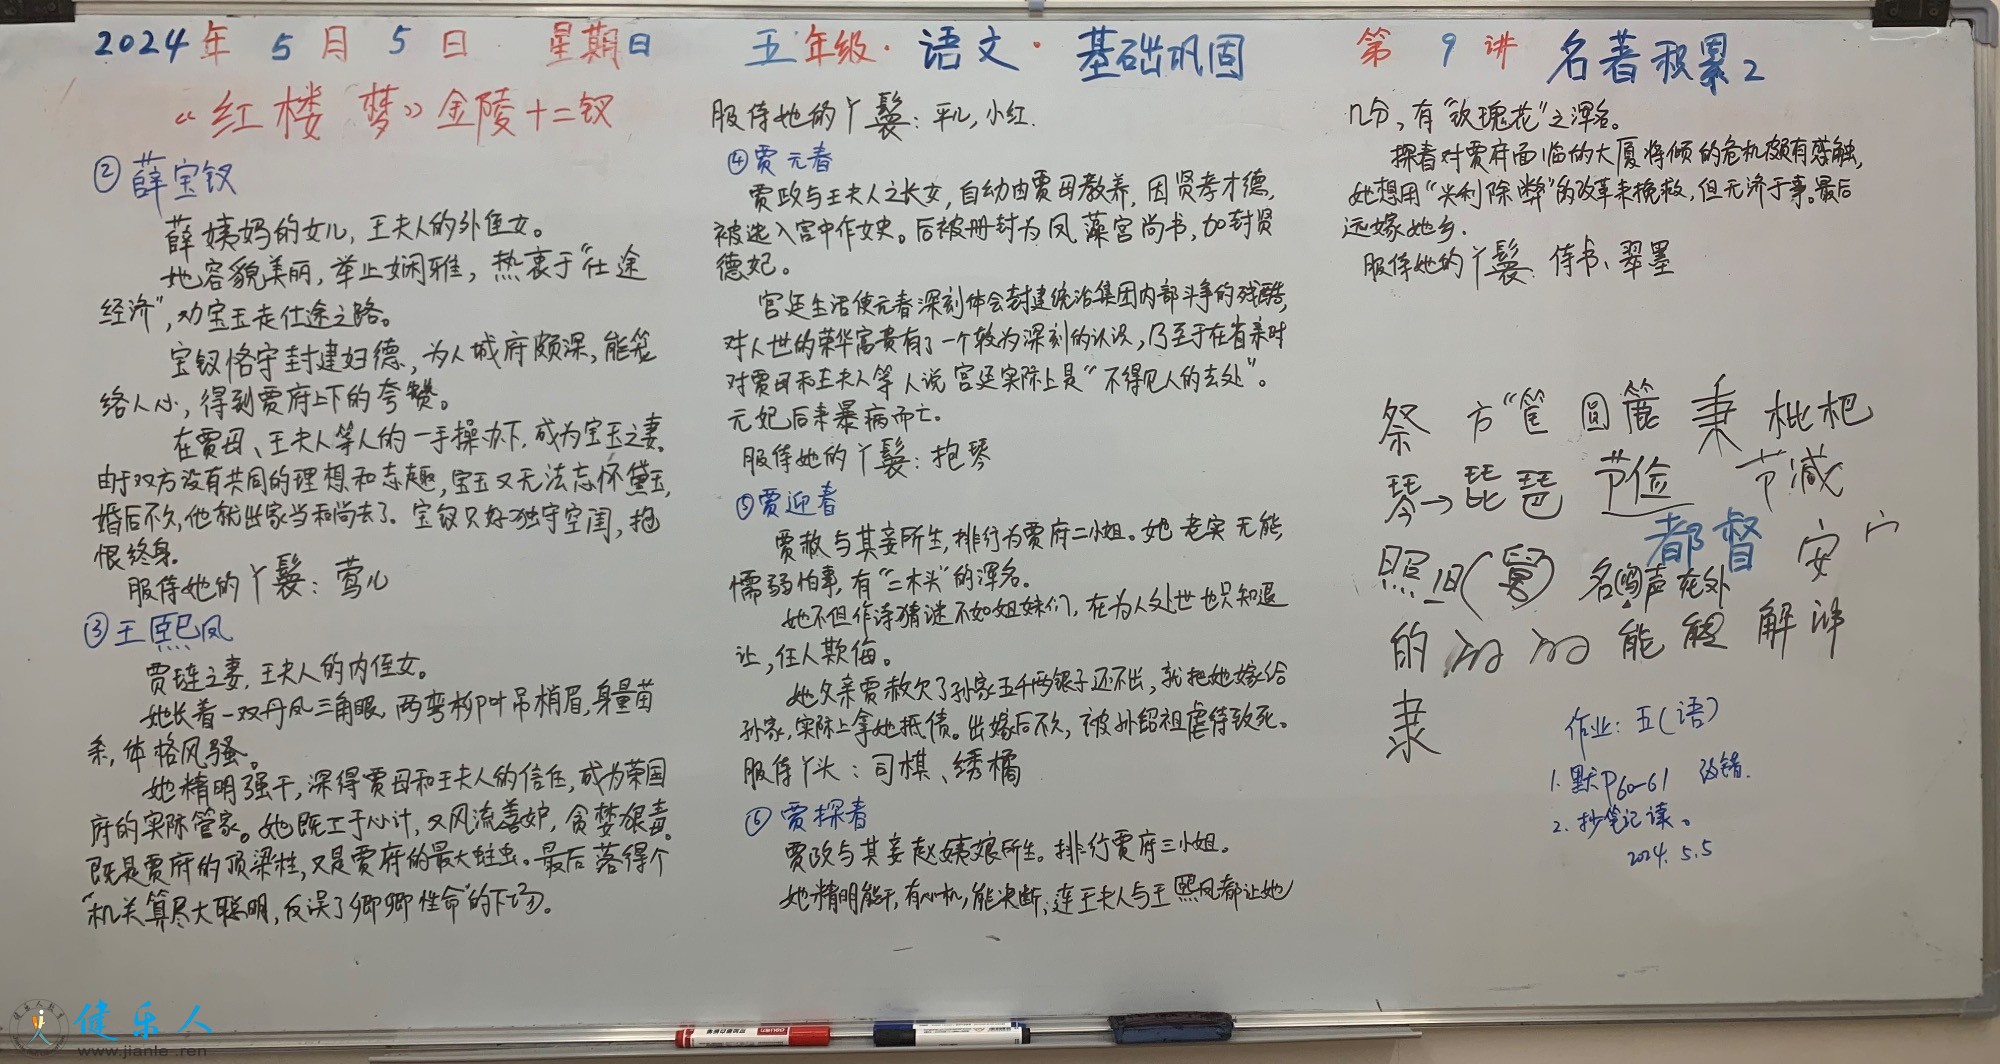 2024年5月5日 星期日 五年级·语文·基础巩固 第9讲 名著积累2
“红楼梦”金陵十二钗
②薛宝钗
薛姨妈的女儿，王夫人的外侄女。
她容貌美丽，举止娴雅，热衷于“仕途
经济”，劝宝玉走仕途之路。
宝钗恪守封建妇德，为人城府颇深，能笼
络人心，得到贾府上下的夸赞。
在贾母、王夫人等人的一手操办下，成为宝玉之妻。
由于双方没有共同的理想和志趣，宝玉又无法忘怀黛玉，
婚后不久，他就出家当和尚去了。宝钗只好独守空闺，抱
恨终身。
服侍她的丫鬟：莺儿
③王熙凤
贾琏之妻，王夫人的内侄女。
她长着一双丹凤三角眼，两弯柳叶吊梢眉，身量苗
条，体格风骚。
她精明强干，深得贾母和王夫人的信任，成为荣国
府的实际管家。她既工于心计，又风流善妒，贪婪狠毒。
既是贾府的顶梁柱，又是贾府的最大蛀虫。最后落得个
“机关算尽太聪明，反误了卿卿性命”的下场。
服侍她的丫鬟：平儿，小红.
④贾元春
贾政与王夫人之长女，自幼由贾母教养，因贤孝才德，
被选入宫中作女史。后被册封为凤藻宫尚书，加封贤
德妃。
宫廷生活使元春深刻体会封建统治集团内部斗争的残酷，
对人世的荣华富贵有了一个较为深刻的认识，乃至于在省亲时
对贾母和王夫人等人说宫廷实际上是“不得见人的去处”。
元妃后来暴病而亡。
服侍她的丫鬟：抱琴
⑤贾迎春
贾赦与其妾所生，排行为贾府二小姐。她老实无能，
懦弱怕事，有“二木头”的浑名。
她不但作诗猜谜不如姐妹们，在为人处世也只知退
让，任人欺侮。
她父亲贾赦欠了孙家五千两银子还不出，就把她嫁给
孙家，实际上拿她抵债。出嫁后不久，被孙绍祖虐待致死。
服侍丫头：司棋、绣橘
⑥贾探春
贾政与其妾赵姨娘所生。排行贾府三小姐。
她精明能干，有心机，能决断，连王夫人与王熙凤都让她
几分，有“玫瑰花”之浑名。
探春对贾府面临的大厦将倾的危机颇有感触，
她想用“兴利除弊”的改革来挽救，但无济于事。最后
远嫁她乡.
服侍她的丫鬟：侍书、翠墨
祭 方“筐 圆篚 秉 枇杷
琴→琵琶 节俭 节减
都督 安 宀
照旧(舅) 名鸣声在外
的 能 解讲
隶
作业：五(语)
1. 默P60-61 改错.
2. 抄笔记读。
2024. 5.5
健乐人
www.jianle.ren